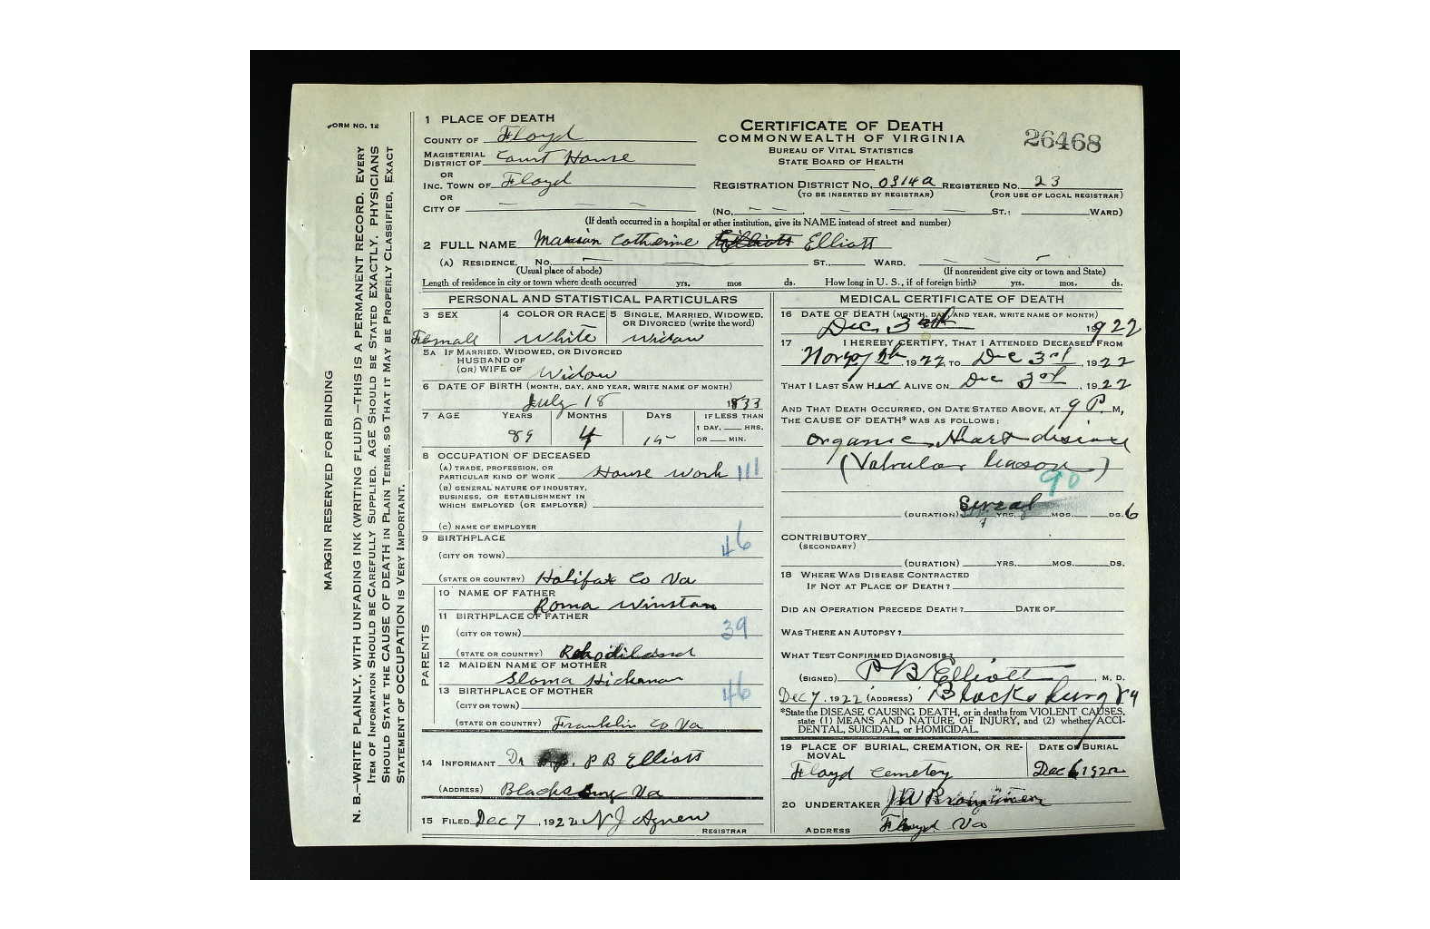 FORM NO. 12
MARGIN RESERVED FOR BINDING
N. B.—WRITE PLAINLY, WITH UNFADING INK (WRITING FLUID)—THIS IS A PERMANENT RECORD. EVERY
ITEM OF INFORMATION SHOULD BE CAREFULLY SUPPLIED. AGE SHOULD BE STATED EXACTLY. PHYSICIANS
SHOULD STATE THE CAUSE OF DEATH IN PLAIN TERMS, SO THAT IT MAY BE PROPERLY CLASSIFIED. EXACT
STATEMENT OF OCCUPATION IS VERY IMPORTANT.
1 PLACE OF DEATH
COUNTY OF Floyd
MAGISTERIAL DISTRICT OF Court House
OR
INC. TOWN OF Floyd
OR
CITY OF
CERTIFICATE OF DEATH
COMMONWEALTH OF VIRGINIA
BUREAU OF VITAL STATISTICS
STATE BOARD OF HEALTH
26468
REGISTRATION DISTRICT NO. 0314A REGISTERED NO. 23
(TO BE INSERTED BY REGISTRAR) (FOR USE OF LOCAL REGISTRAR)
(No. ST.; WARD)
(If death occurred in a hospital or other institution, give its NAME instead of street and number)
2 FULL NAME Marian Catherine Elliott
(A) RESIDENCE. No. ST. WARD.
(Usual place of abode) (If nonresident give city or town and State)
Length of residence in city or town where death occurred yrs. mos ds. How long in U. S., if of foreign birth? yrs. mos. ds.
PERSONAL AND STATISTICAL PARTICULARS
3 SEX 4 COLOR OR RACE 5 SINGLE, MARRIED, WIDOWED, OR DIVORCED (write the word)
Female White Widow
5A IF MARRIED, WIDOWED, OR DIVORCED
HUSBAND OF
(OR) WIFE OF Widow
6 DATE OF BIRTH (MONTH, DAY, AND YEAR, WRITE NAME OF MONTH)
July 18 1833
7 AGE YEARS MONTHS DAYS IF LESS THAN
1 DAY, HRS.
OR MIN.
89 4 15
8 OCCUPATION OF DECEASED
(A) TRADE, PROFESSION, OR
PARTICULAR KIND OF WORK House work 111
(B) GENERAL NATURE OF INDUSTRY,
BUSINESS, OR ESTABLISHMENT IN
WHICH EMPLOYED (OR EMPLOYER)
(C) NAME OF EMPLOYER
9 BIRTHPLACE
(CITY OR TOWN) 46
(STATE OR COUNTRY) Halifax Co Va
PARENTS
10 NAME OF FATHER
Roma Winston
11 BIRTHPLACE OF FATHER
(CITY OR TOWN) 39
(STATE OR COUNTRY) Rhodiland
12 MAIDEN NAME OF MOTHER
Sloma Hickman
13 BIRTHPLACE OF MOTHER
(CITY OR TOWN) 46
(STATE OR COUNTRY) Franklin Co Va
14 INFORMANT Dr P B Elliott
(ADDRESS) Blacksburg Va
15 FILED Dec 7, 1922 N J Agnew
REGISTRAR
MEDICAL CERTIFICATE OF DEATH
16 DATE OF DEATH (MONTH, DAY, AND YEAR, WRITE NAME OF MONTH)
Dec 3 1922
17 I HEREBY CERTIFY, THAT I ATTENDED DECEASED FROM
1922 TO Dec 3rd, 1922
THAT I LAST SAW Her ALIVE ON Dec 3rd, 1922
AND THAT DEATH OCCURRED, ON DATE STATED ABOVE, AT 9 P. M,
THE CAUSE OF DEATH* WAS AS FOLLOWS:
Organic Heart disease
(Valvular leason)
90
(DURATION) YRS. MOS. DS. 6
CONTRIBUTORY
(SECONDARY)
(DURATION) YRS. MOS. DS.
18 WHERE WAS DISEASE CONTRACTED
IF NOT AT PLACE OF DEATH?
DID AN OPERATION PRECEDE DEATH? DATE OF
WAS THERE AN AUTOPSY?
WHAT TEST CONFIRMED DIAGNOSIS?
(SIGNED) P B Elliott, M. D.
Dec 7, 1922 (ADDRESS) Blacksburg Va
*State the DISEASE CAUSING DEATH, or in deaths from VIOLENT CAUSES,
state (1) MEANS AND NATURE OF INJURY, and (2) whether ACCI-
DENTAL, SUICIDAL, or HOMICIDAL.
19 PLACE OF BURIAL, CREMATION, OR RE-
MOVAL DATE OF BURIAL
Floyd Cemetery Dec 6 1922
20 UNDERTAKER
ADDRESS Floyd Va